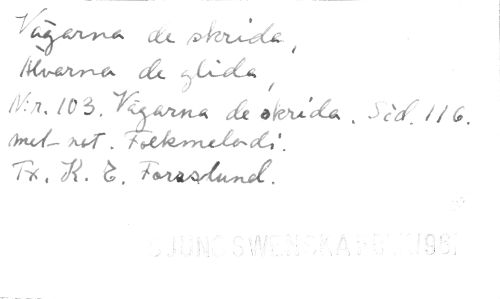 Vågarna de skrida,
Älvarna de glida,
N:r. 103. Vågarna de skrida. Sid. 116.
mel-not. Folkmelodi.
Tx. K. E. Forsslund.
SJUNG SWENSKA FOLK 1967